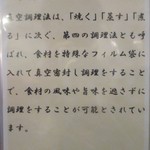 真空調理法は、「焼く」「蒸す」「煮
る」に次ぐ、第四の調理法とも呼
ばれ、食材を特殊なフィルム袋に
入れて真空密封し調理をすること
で、食材の風味や旨味を逃さずに
調理をすることが可能とされてい
ます。